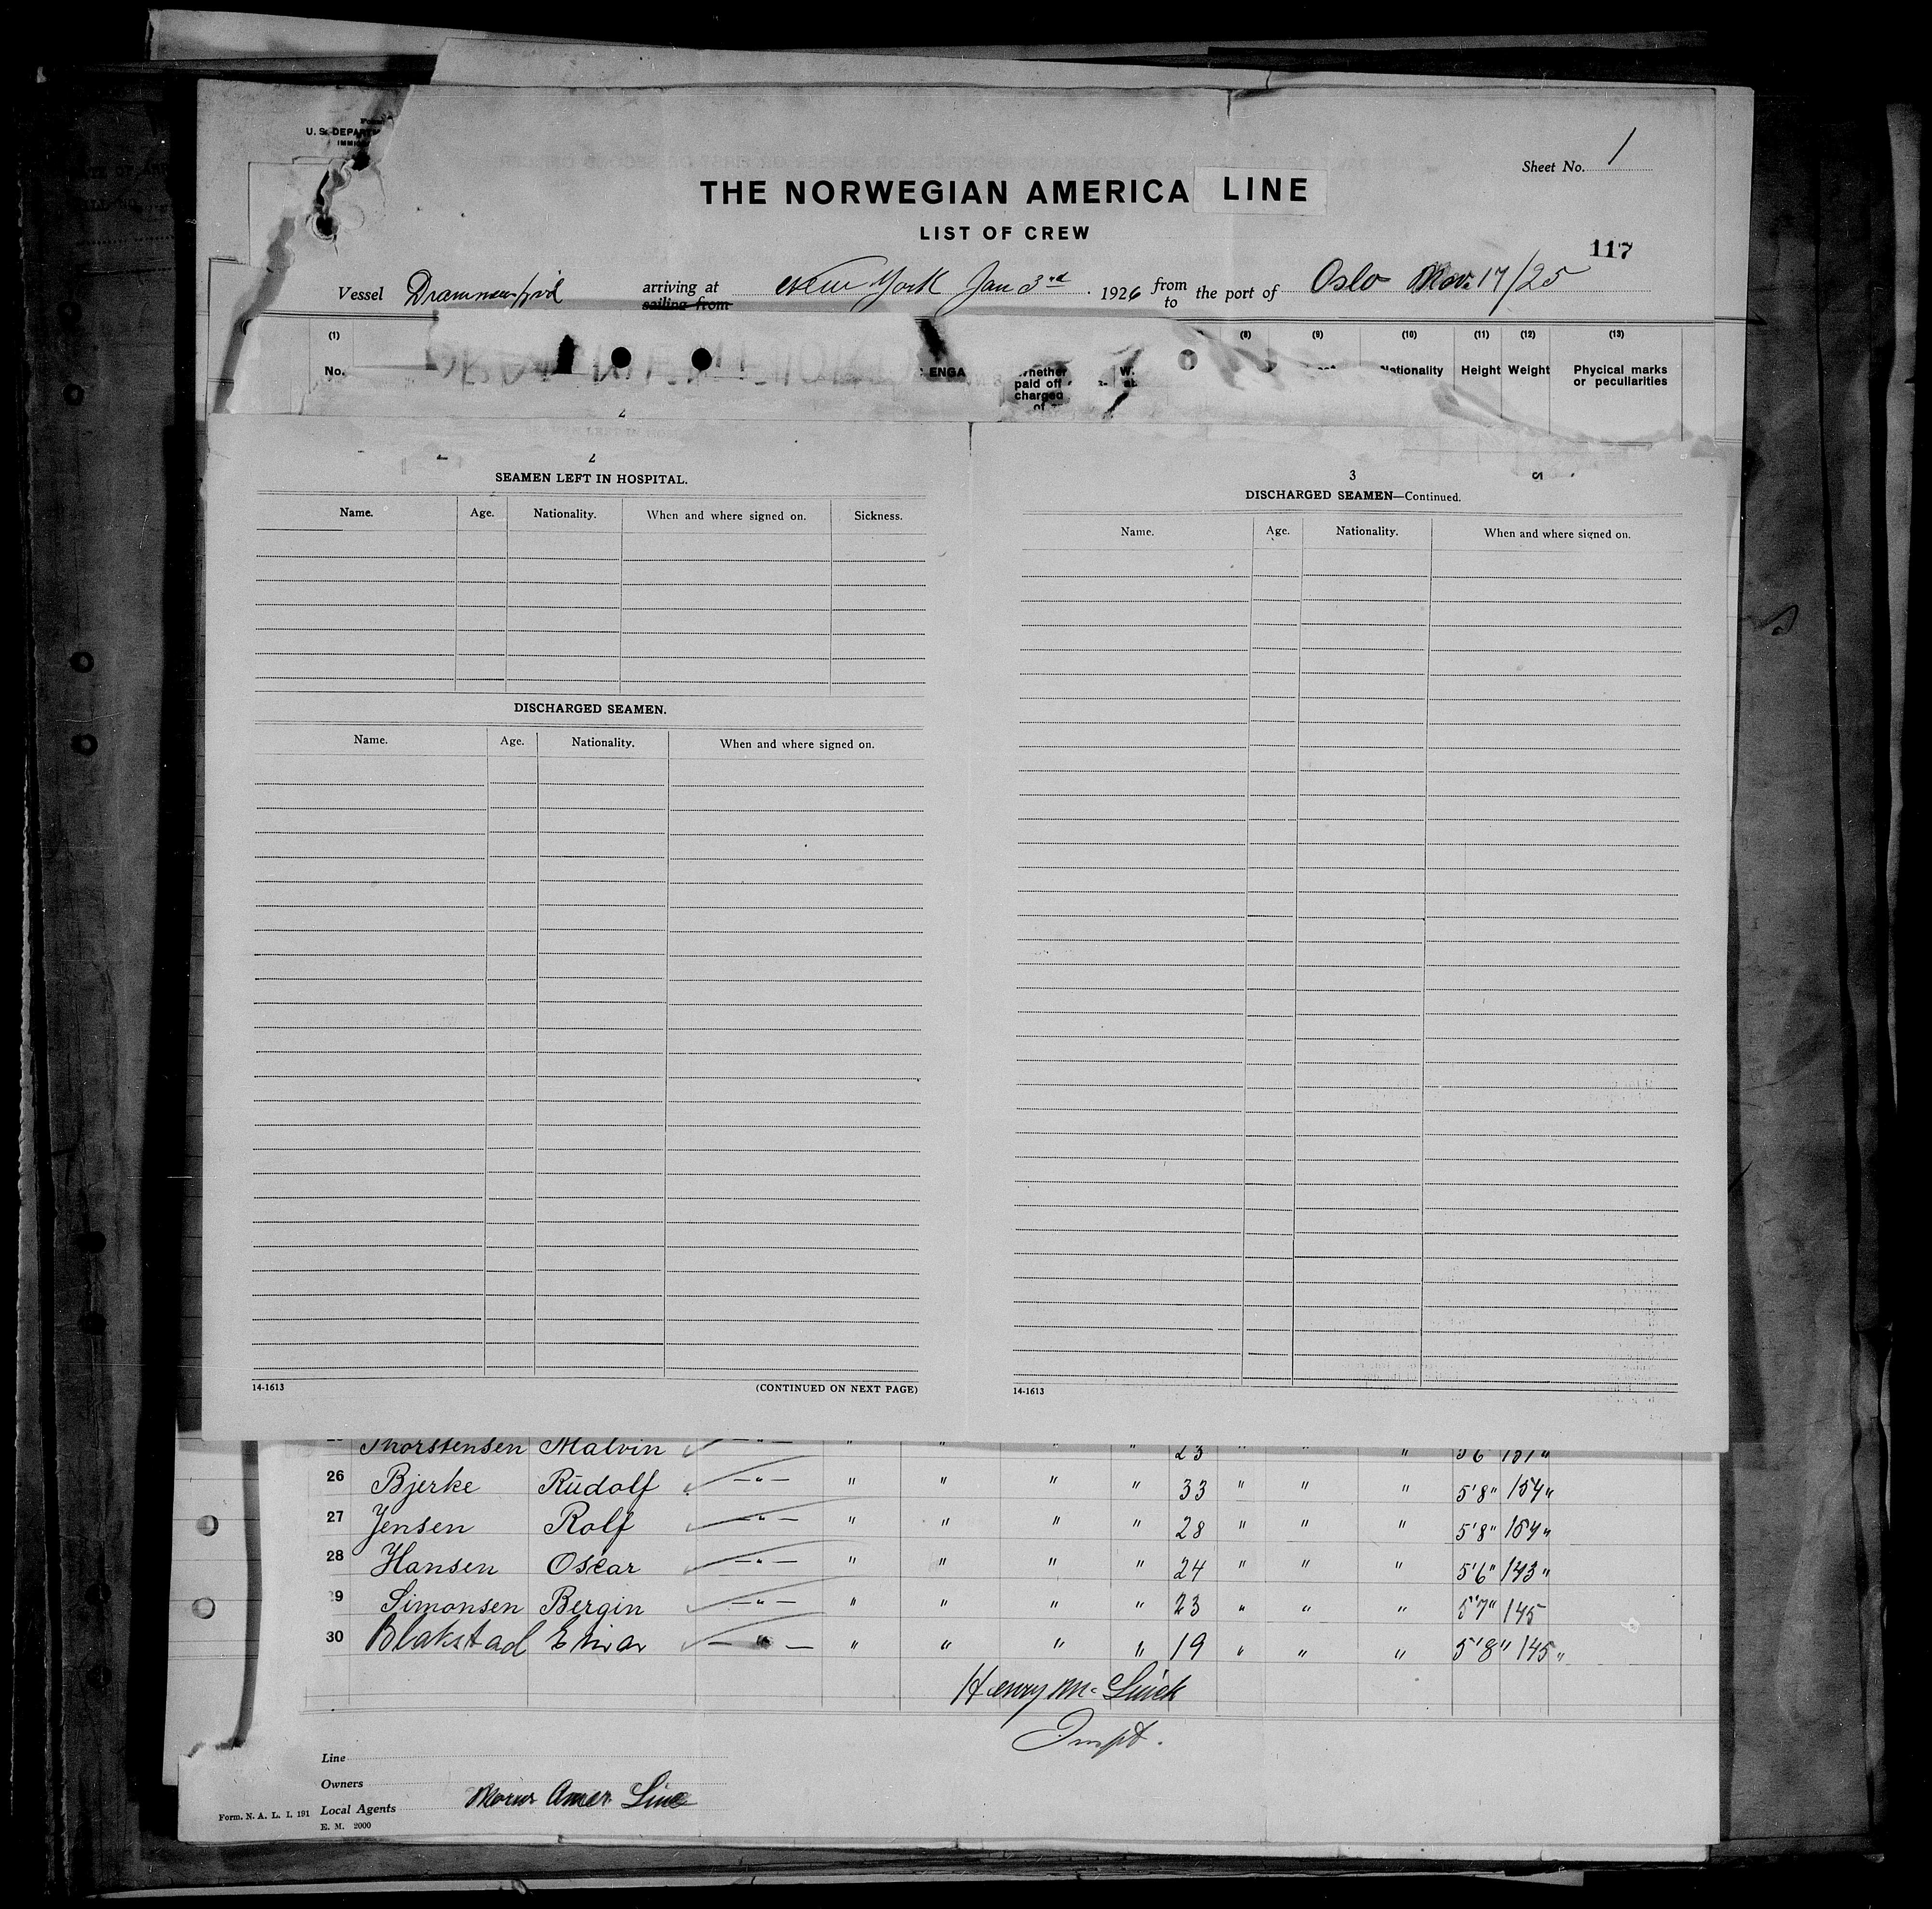 U. S. DEPARTM
IMMIG
Sheet No. 1
THE NORWEGIAN AMERICA LINE
LIST OF CREW
117
Vessel Drammensfjord arriving at sailing from New York Jan 3rd 1926 from to the port of Oslo Nov. 17/25
(1) (8) (9) (10) (11) (12) (13)
No. ENGA whether paid off charged of W. Nationality Height Weight Phycical marks or peculiarities
2
SEAMEN LEFT IN HOSPITAL.
Name. Age. Nationality. When and where signed on. Sickness.
DISCHARGED SEAMEN.
Name. Age. Nationality. When and where signed on.
14-1613 (CONTINUED ON NEXT PAGE)
3
DISCHARGED SEAMEN—Continued.
Name. Age. Nationality. When and where signed on.
14-1613
Thorstensen Malvin " " " " " 23 " " " 5'6 151 "
26 Bjerke Rudolf — " — " " " " 33 " " " 5'8" 154 "
27 Jensen Rolf — " — " " " " 28 " " " 5'8" 154 "
28 Hansen Oscar — " — " " " " 24 " " " 5'6" 143 "
29 Simonsen Bergin — " — " " " " 23 " " " 5'7" 145
30 Blakstad Einar — " — " " " " 19 " " " 5'8" 145 "
Henry Mc
Inspt.
Line
Owners
Form. N. A. L. I. 191 Local Agents Norw Amer Line
E. M. 2000